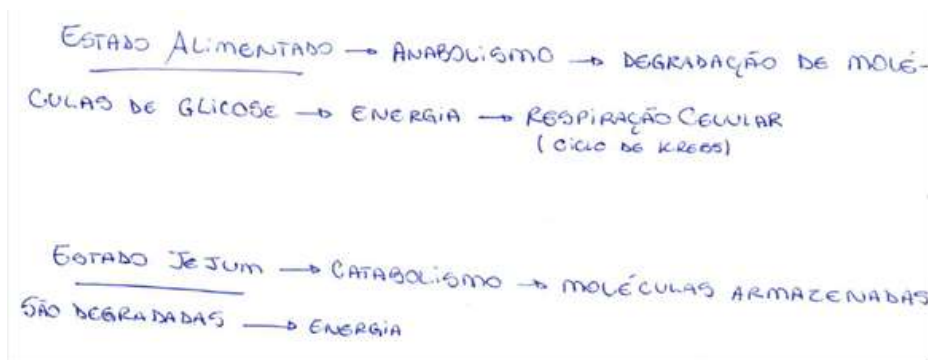 ESTADO ALIMENTADO → ANABOLISMO → DEGRADAÇÃO DE MOLÉ-
CULAS DE GLICOSE → ENERGIA → RESPIRAÇÃO CELULAR
(CICLO DE KREBS)
ESTADO JEJUM → CATABOLISMO → MOLÉCULAS ARMAZENADAS
SÃO DEGRADADAS → ENERGIA